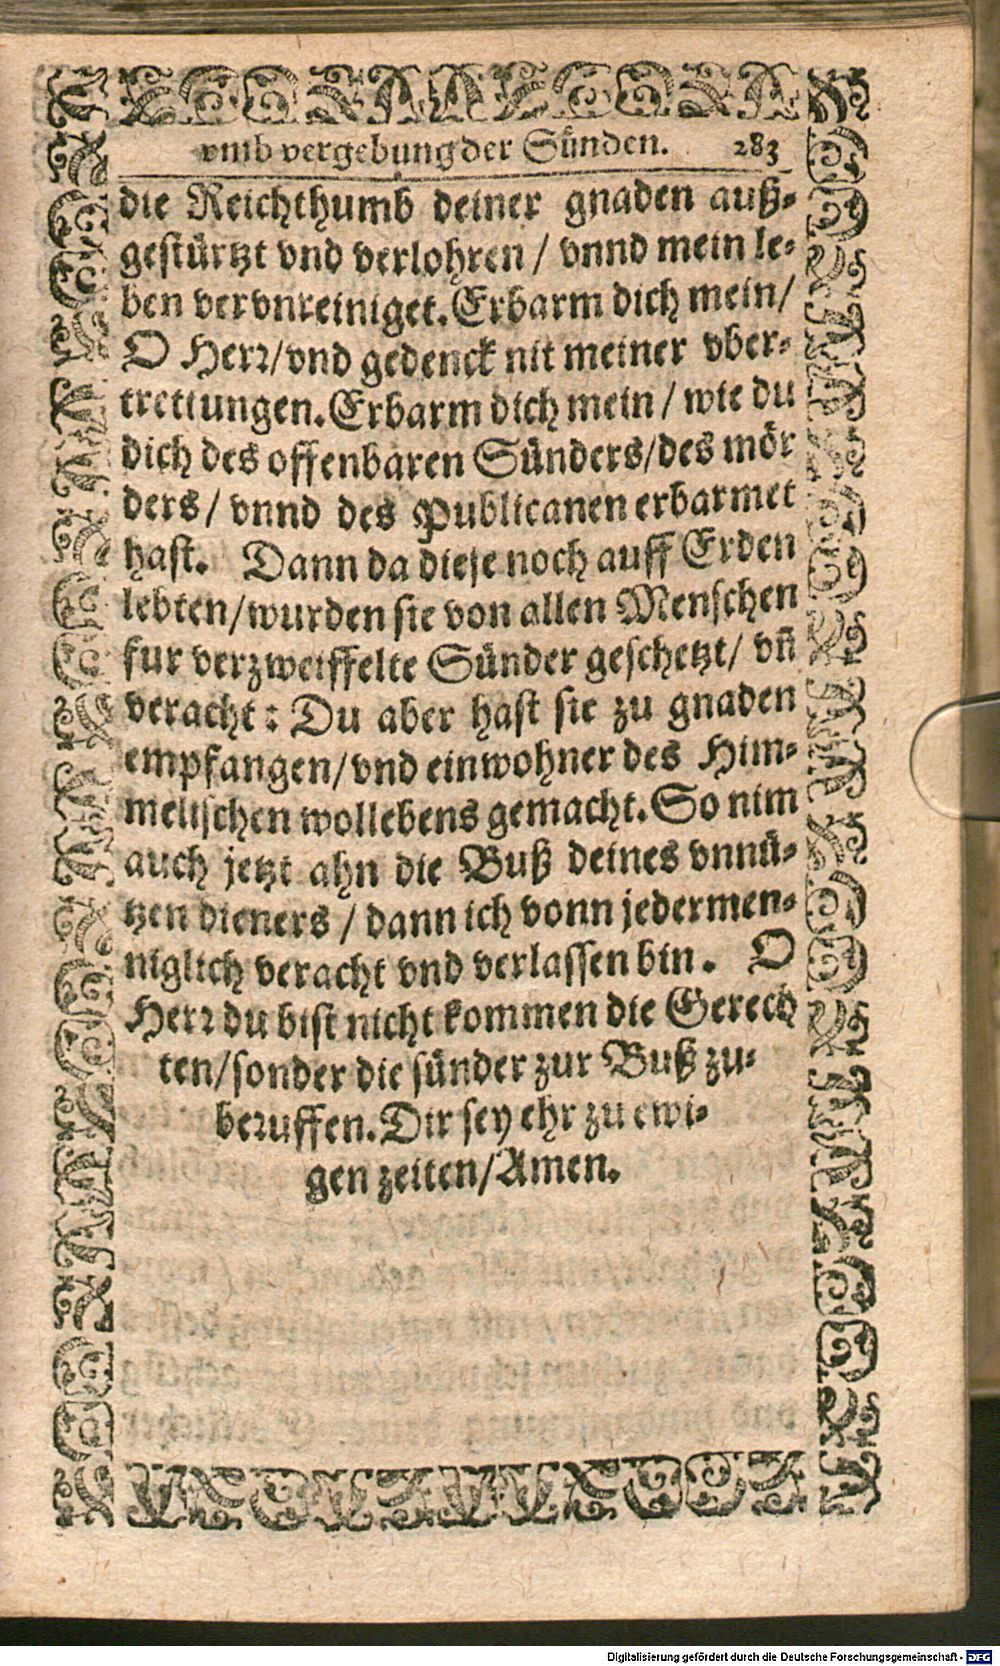 vmb vergebung der Sünden. 283
die Reichthumb deiner gnaden auß-
gestürtzt vnd verlohren / vnnd mein le-
ben vervnreiniget. Erbarm dich mein /
O Herr / vnd gedenck nit meiner vber-
trettungen. Erbarm dich mein / wie du
dich des offenbaren Sünders / des mör
ders / vnnd des Publicanen erbarmet
hast. Dann da diese noch auff Erden
lebten / wurden sie von allen Menschen
fur verzweiffelte Sünder geschetzt / vñ
veracht: Du aber hast sie zu gnaden
empfangen / vnd einwohner des Him-
melischen wollebens gemacht. So nim
auch jetzt ahn die Buß deines vnnü-
tzen dieners / dann ich vonn jedermen-
niglich veracht vnd verlassen bin. O
Herr du bist nicht kommen die Gerech
ten / sonder die sünder zur Buß zu-
beruffen. Dir sey ehr zu ewi-
gen zeiten / Amen.
Digitalisierung gefördert durch die Deutsche Forschungsgemeinschaft - DFG